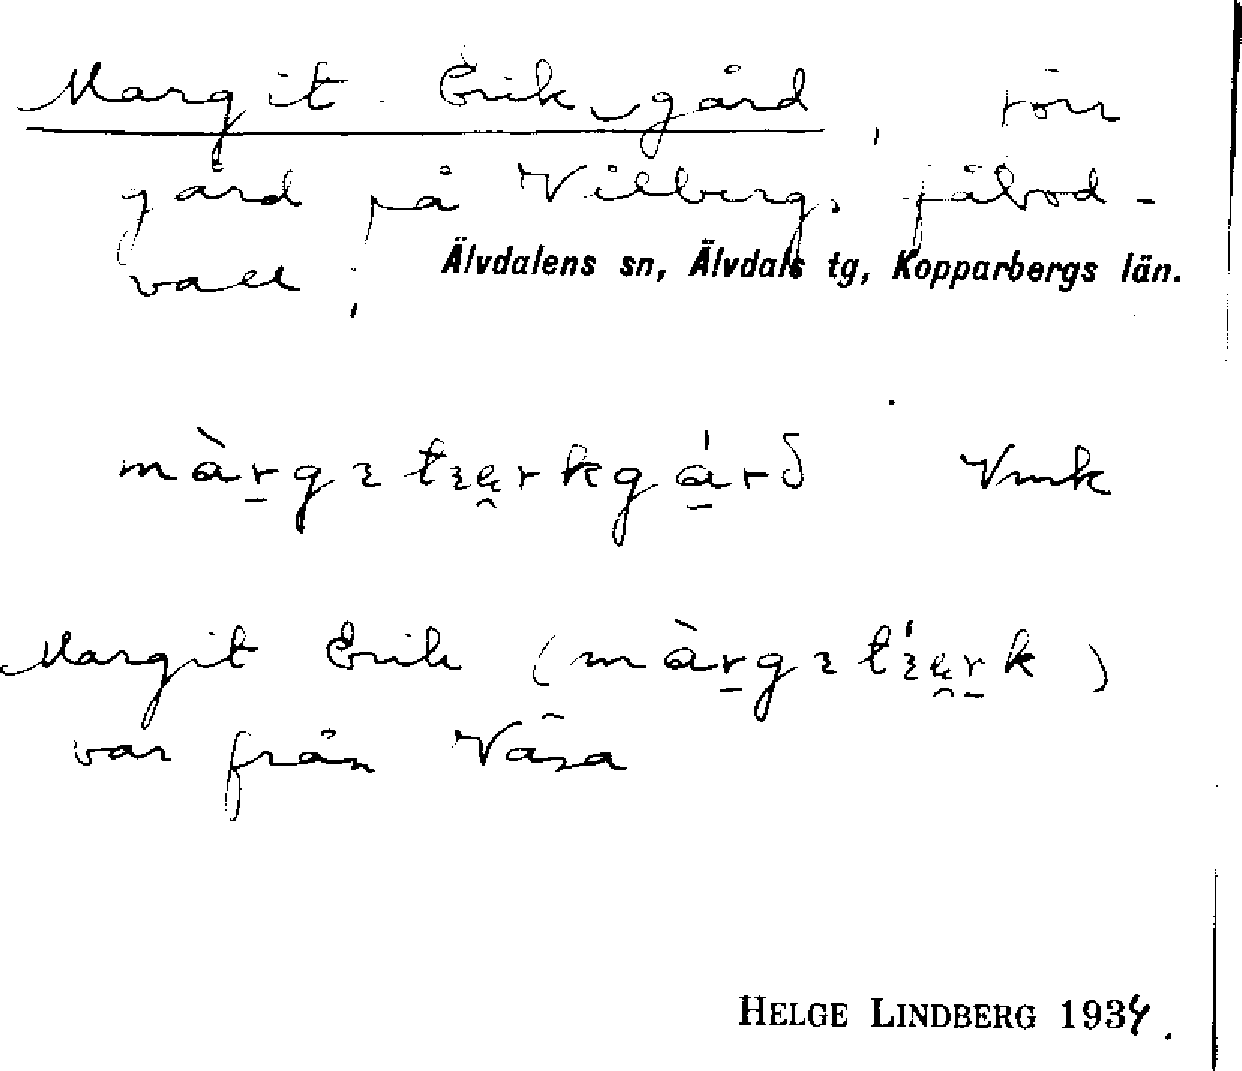 Margit Erik gård, förr
gård på Vilbergs fäbod-
vall;
Älvdalens sn, Älvdals tg, Kopparbergs län.
màrgɿtɿɐrkgárð Vmk
Margit Erik (màrgɿtɿ́ɐrk)
var från Våsa
HELGE LINDBERG 1934.